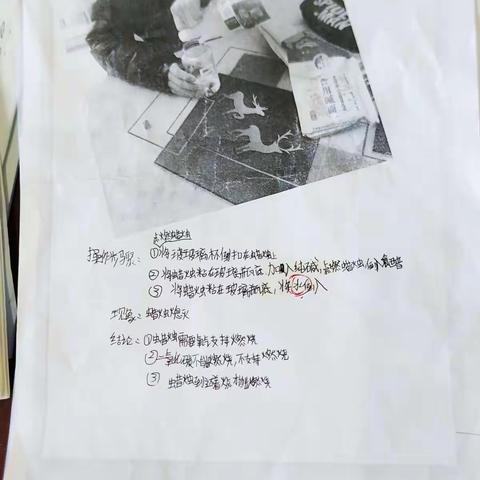 点燃蜡烛
操作步骤: ①将玻璃杯倒扣在蜡烛上
②将蜡烛粘在玻璃瓶底,加入纯碱,点燃蜡烛倒入食醋
③将蜡烛粘在玻璃瓶底,将水倒入
现象: 蜡烛熄灭
结论: ①蜡烛需要氧支持燃烧
②二氧化碳不能燃烧,不支持燃烧
③蜡烛到着燃烧